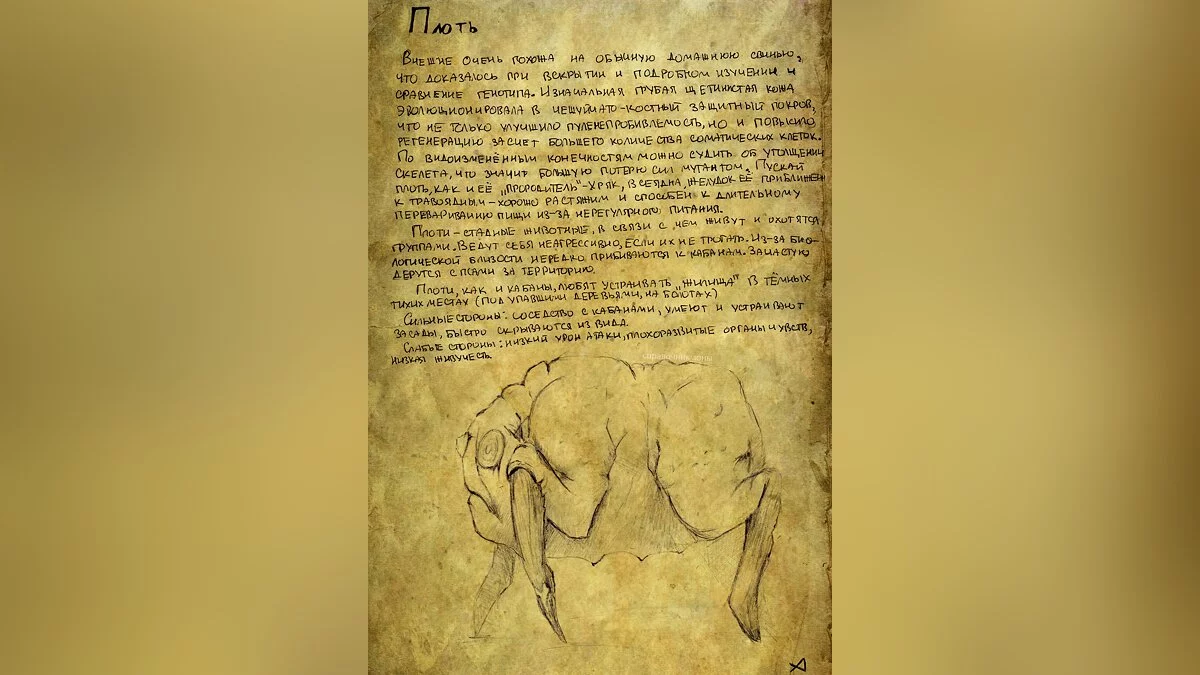 Плоть
Внешне очень похожа на обычную домашнюю свинью,
что доказалось при вскрытии и подробном изучении и
сравнение генотипа. Изначальная грубая щетинистая кожа
эволюционировала в чешуйчато-костный защитный покров,
что не только улучшило пуленепробивлемость, но и повысило
регенерацию засчёт большего количества соматических клеток.
По видоизменённым конечностям можно судить об утолщении
скелета, что значит большую потерю сил мутантом. Пускай
плоть, как и её „прородитель"-хряк, всеядна, желудок её приближен
к травоядным - хорошо растяжим и способен к длительному
перевариванию пищи из-за нерегулярного питания.
Плоти - стадные животные, в связи с чем живут и охотятся
группами. Ведут себя неагрессивно, если их не трогать. Из-за био-
логической близости нередко прибиваются к кабанам. Зачастую
дерутся с псами за территорию.
Плоти, как и кабаны, любят устраивать „жилища" в тёмных
тихих местах (под упавшими деревьями, на болотах)
Сильные стороны: соседство с кабанами, умеют и устраивают
засады, быстро скрываются из вида.
Слабые стороны: низкий урон атаки, плохоразвитые органы чувств,
низкая живучесть.